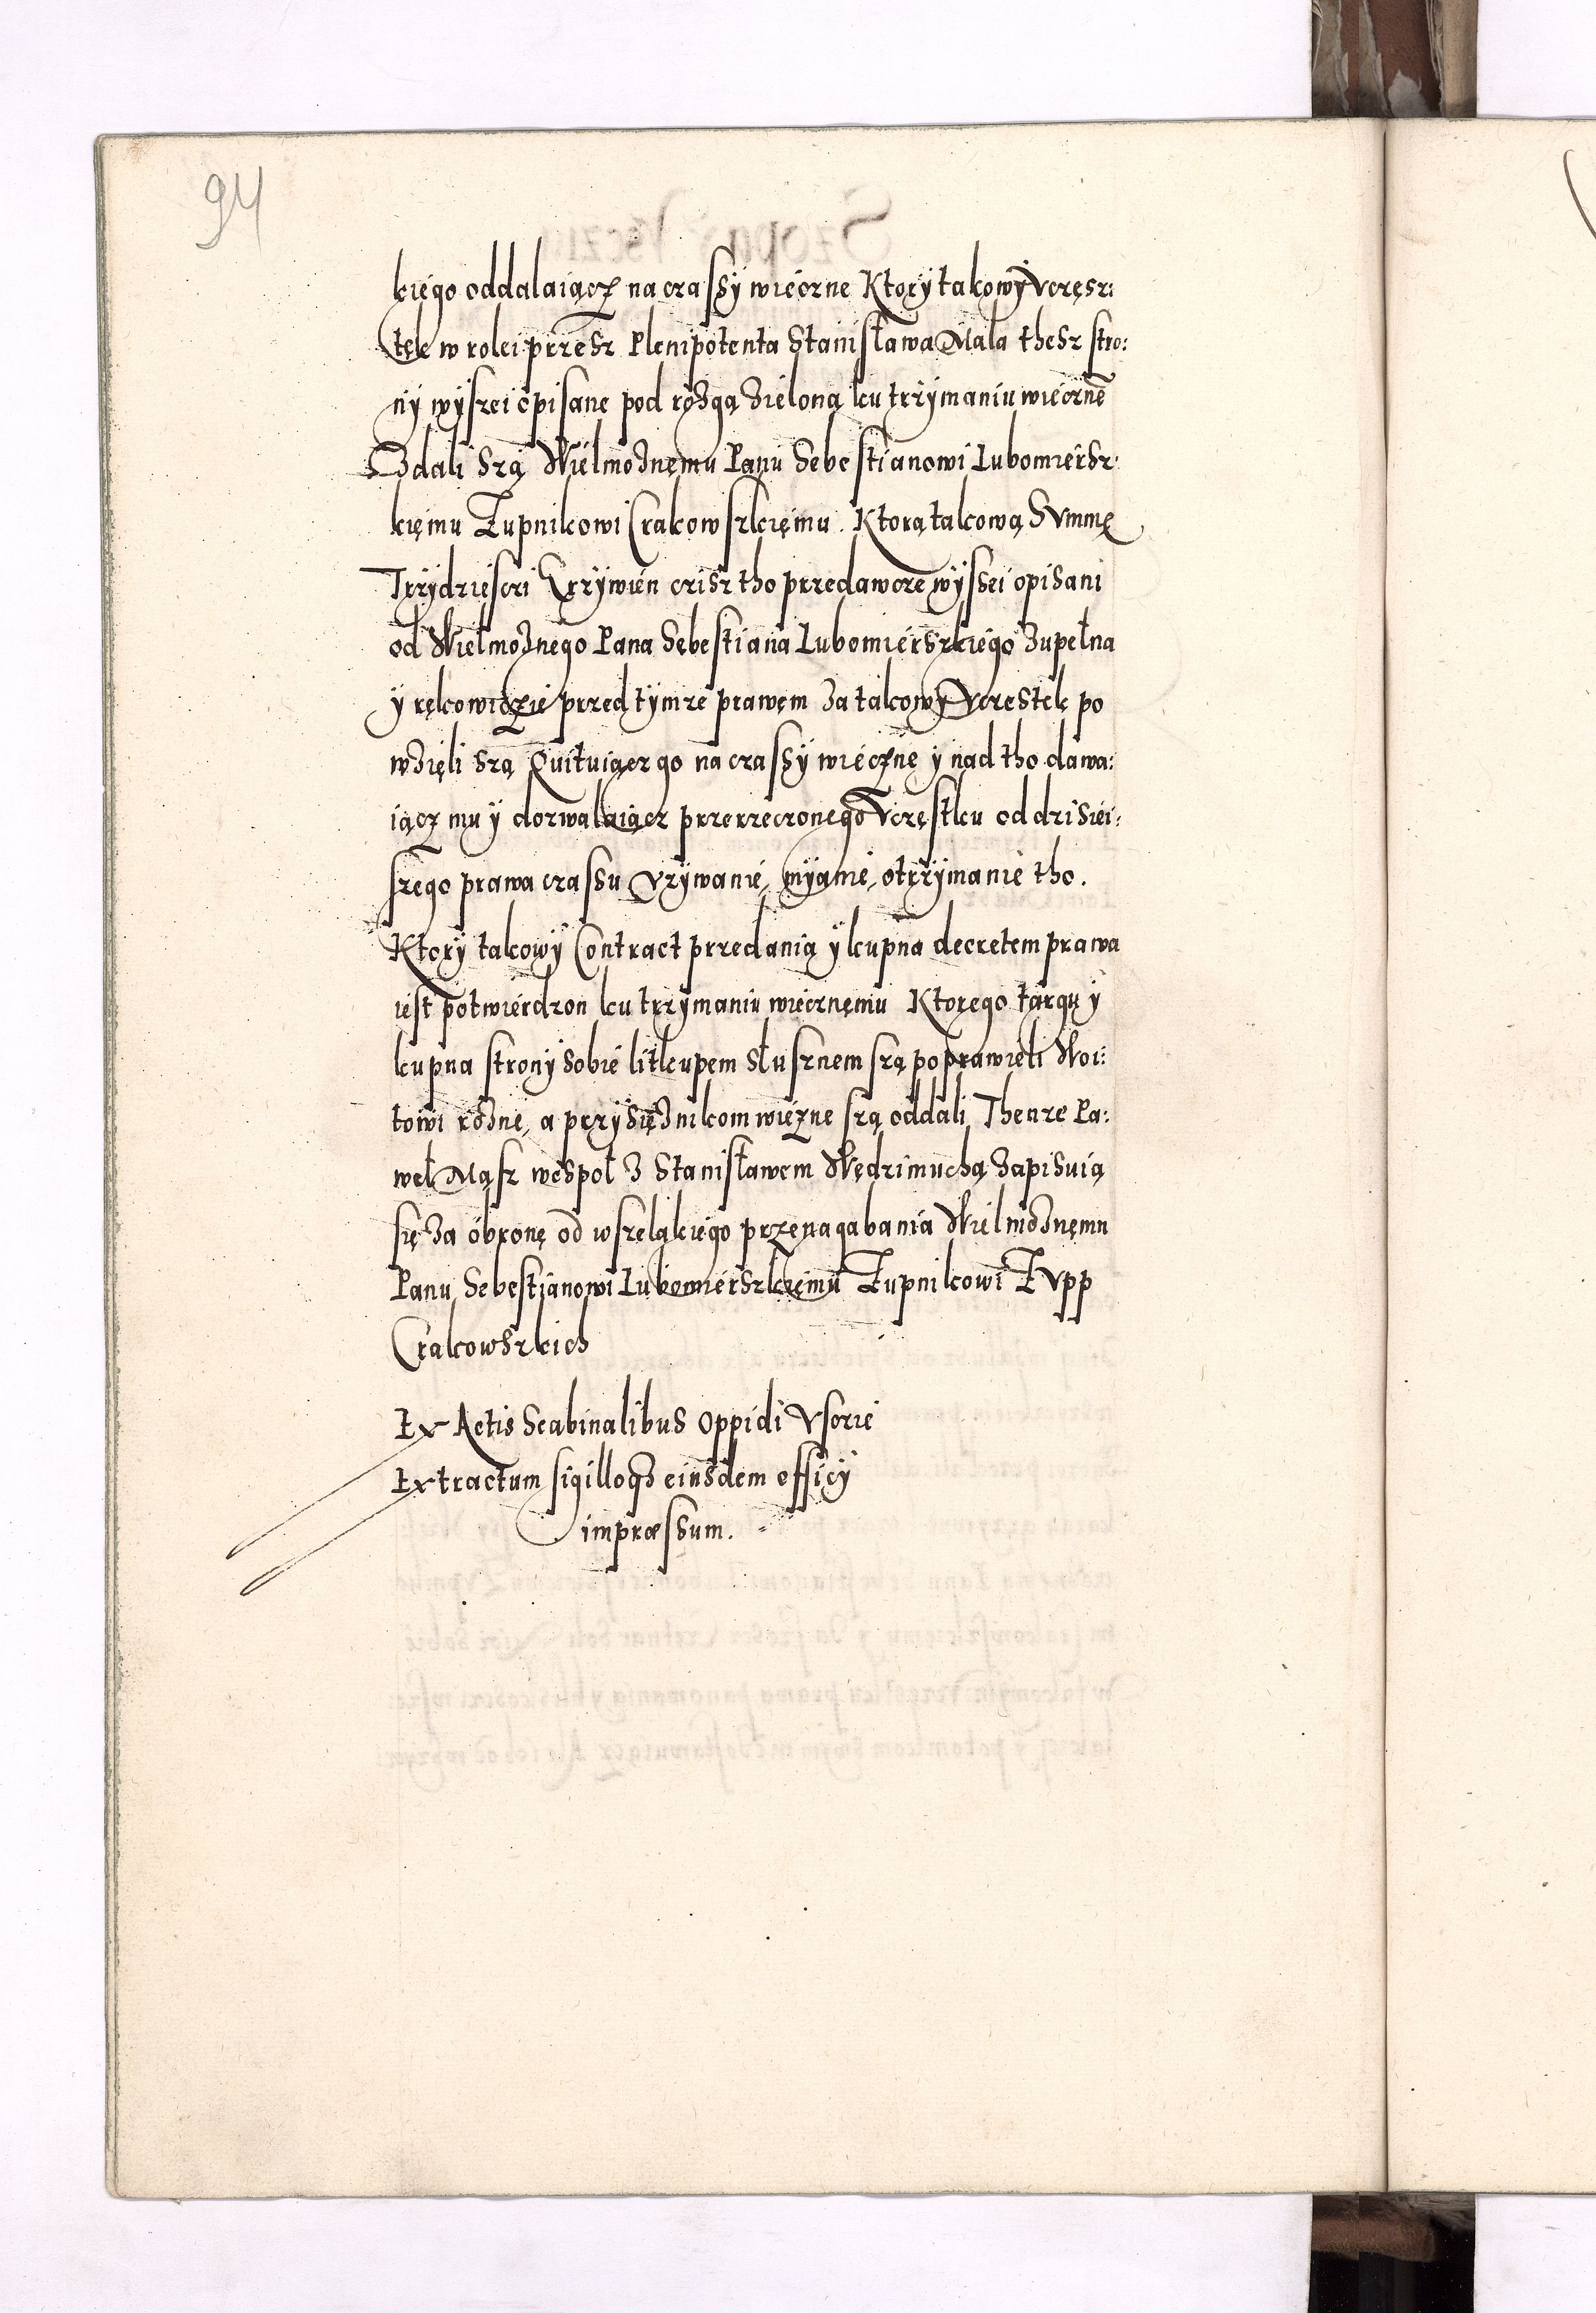 94
kiego oddalaiącz na czassy wieczne Ktory takowy Vczęsz:
tek w rolei przesz Plenipotenta Stanisława Mala thesz stro:
ny wyszei opisane pod rozgą zieloną ku trzymaniu wiecznē
Zdali szą Wielmoznemu Panu Sebestianowi Lubomiersz:
kiemu Zupnikowi Crakowszkięmu. Ktorą takową Summę
Trzydziesczi Grzywien czisz tho przedawcze wyssei opisani
od Wielmoznego Pana Sebestiana Lubomierszkiego zupełna
y rękowidzie przed tymze prawem za takowy Vczestek po
wzięli szą Quituiącz go na czassy wieczne y nad tho dawa:
iącz mu y dozwalaiącz przerzeczonego Vczęstku od dzisiei:
szego prawa czassu vzywanie, myanie, otrzymanie tho.
Ktory takowy Contract przedania y kupna decretem prawa
iest potwierdzon ku trzymaniu wiecznemu Ktorego targu y
kupna strony sobie litkupem słusznem szą poprawieli Woi:
towi rozne, a przysięznikom wiezne szą oddali Thenze Pa:
weł Mąsz wespoł z Stanisławem Wędzimuchą zapisuią
się za obronę od wszelakiego przenagabania Wielmoznemu
Panu Sebestianowi Lubomierszkiemu Zupnikowi Zupp
Crakowszkich
Ex Actis Scabinalibus Oppidi Vsczie
Extractum sigilloqz eiusdem officij
impræssum.